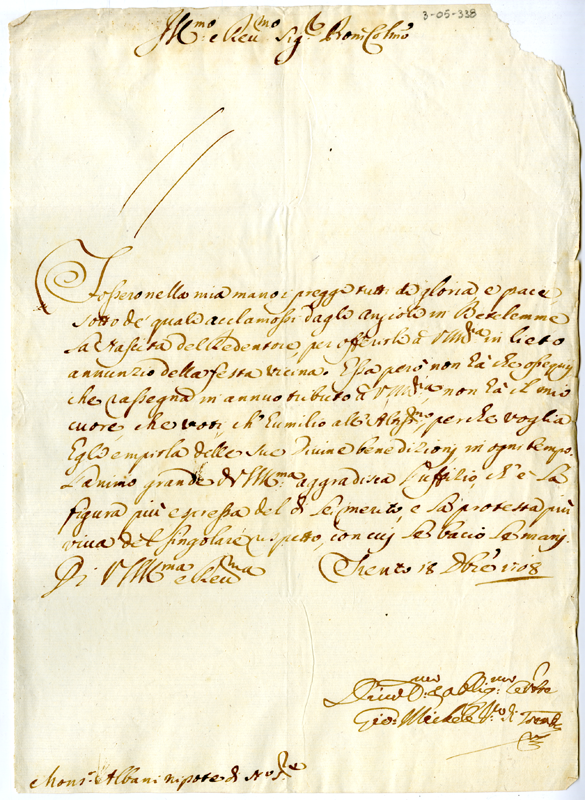 3-05-338
Ill.mo e Reu.mo Sig.r Pron Colmo
Fossero nella mia mano i preggi tutti de gloria e pace,
sotto de quali acclamossi dagl'Angioli in Betelemme
la Nascita del Redentore per offerirli à V.S.Ill.ma in lieto
annunzio della festa vicina. Essa però non hà che ossequij
che rassegna in annuo tributo à V.S.Ill.ma, non hà il mio
cuore che voti ch'humilio all'Altis.mo, perche voglia
Egli empirla delle sue Divine benedizionj in ogni tempo.
L'animo grande di V.S.Ill.ma aggradisca l'uffizio, ch'è la
figura più espressa del di lei merito, e la protesta più
viva del singolare rispetto, con cuj le bacio le manj.
Di V.S.Ill.ma e Reu.ma Trento 18 Xbre 1708
Diuot.mo et oblig.mo Seru.re
Gio: Michele V.uo di Trento
Mons.r Albani nipote di N. S.re